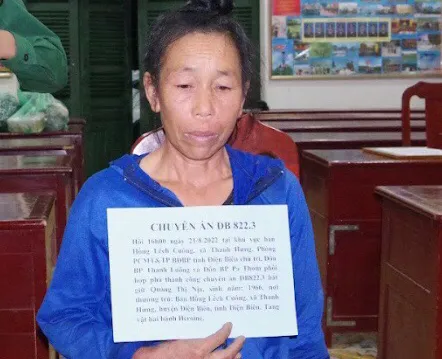 CHUYÊN ÁN ĐB 822.3
Hồi 16h00 ngày 21/8/2022 tại khu vực bản
Hồng Lếch Cuông, xã Thanh Hưng, Phòng
PCMT&TP BĐBP tỉnh Điện Biên chủ trì, Đồn
BP Thanh Luông và Đồn BP Pa Thơm phối
hợp phá thành công chuyên án ĐB822.3 bắt
giữ Quàng Thị Nội, sinh năm: 1966, nơi
thường trú: Bản Hồng Lếch Cuông, xã Thanh
Hưng, huyện Điện Biên, tỉnh Điện Biên. Tang
vật hai bánh Heroine.